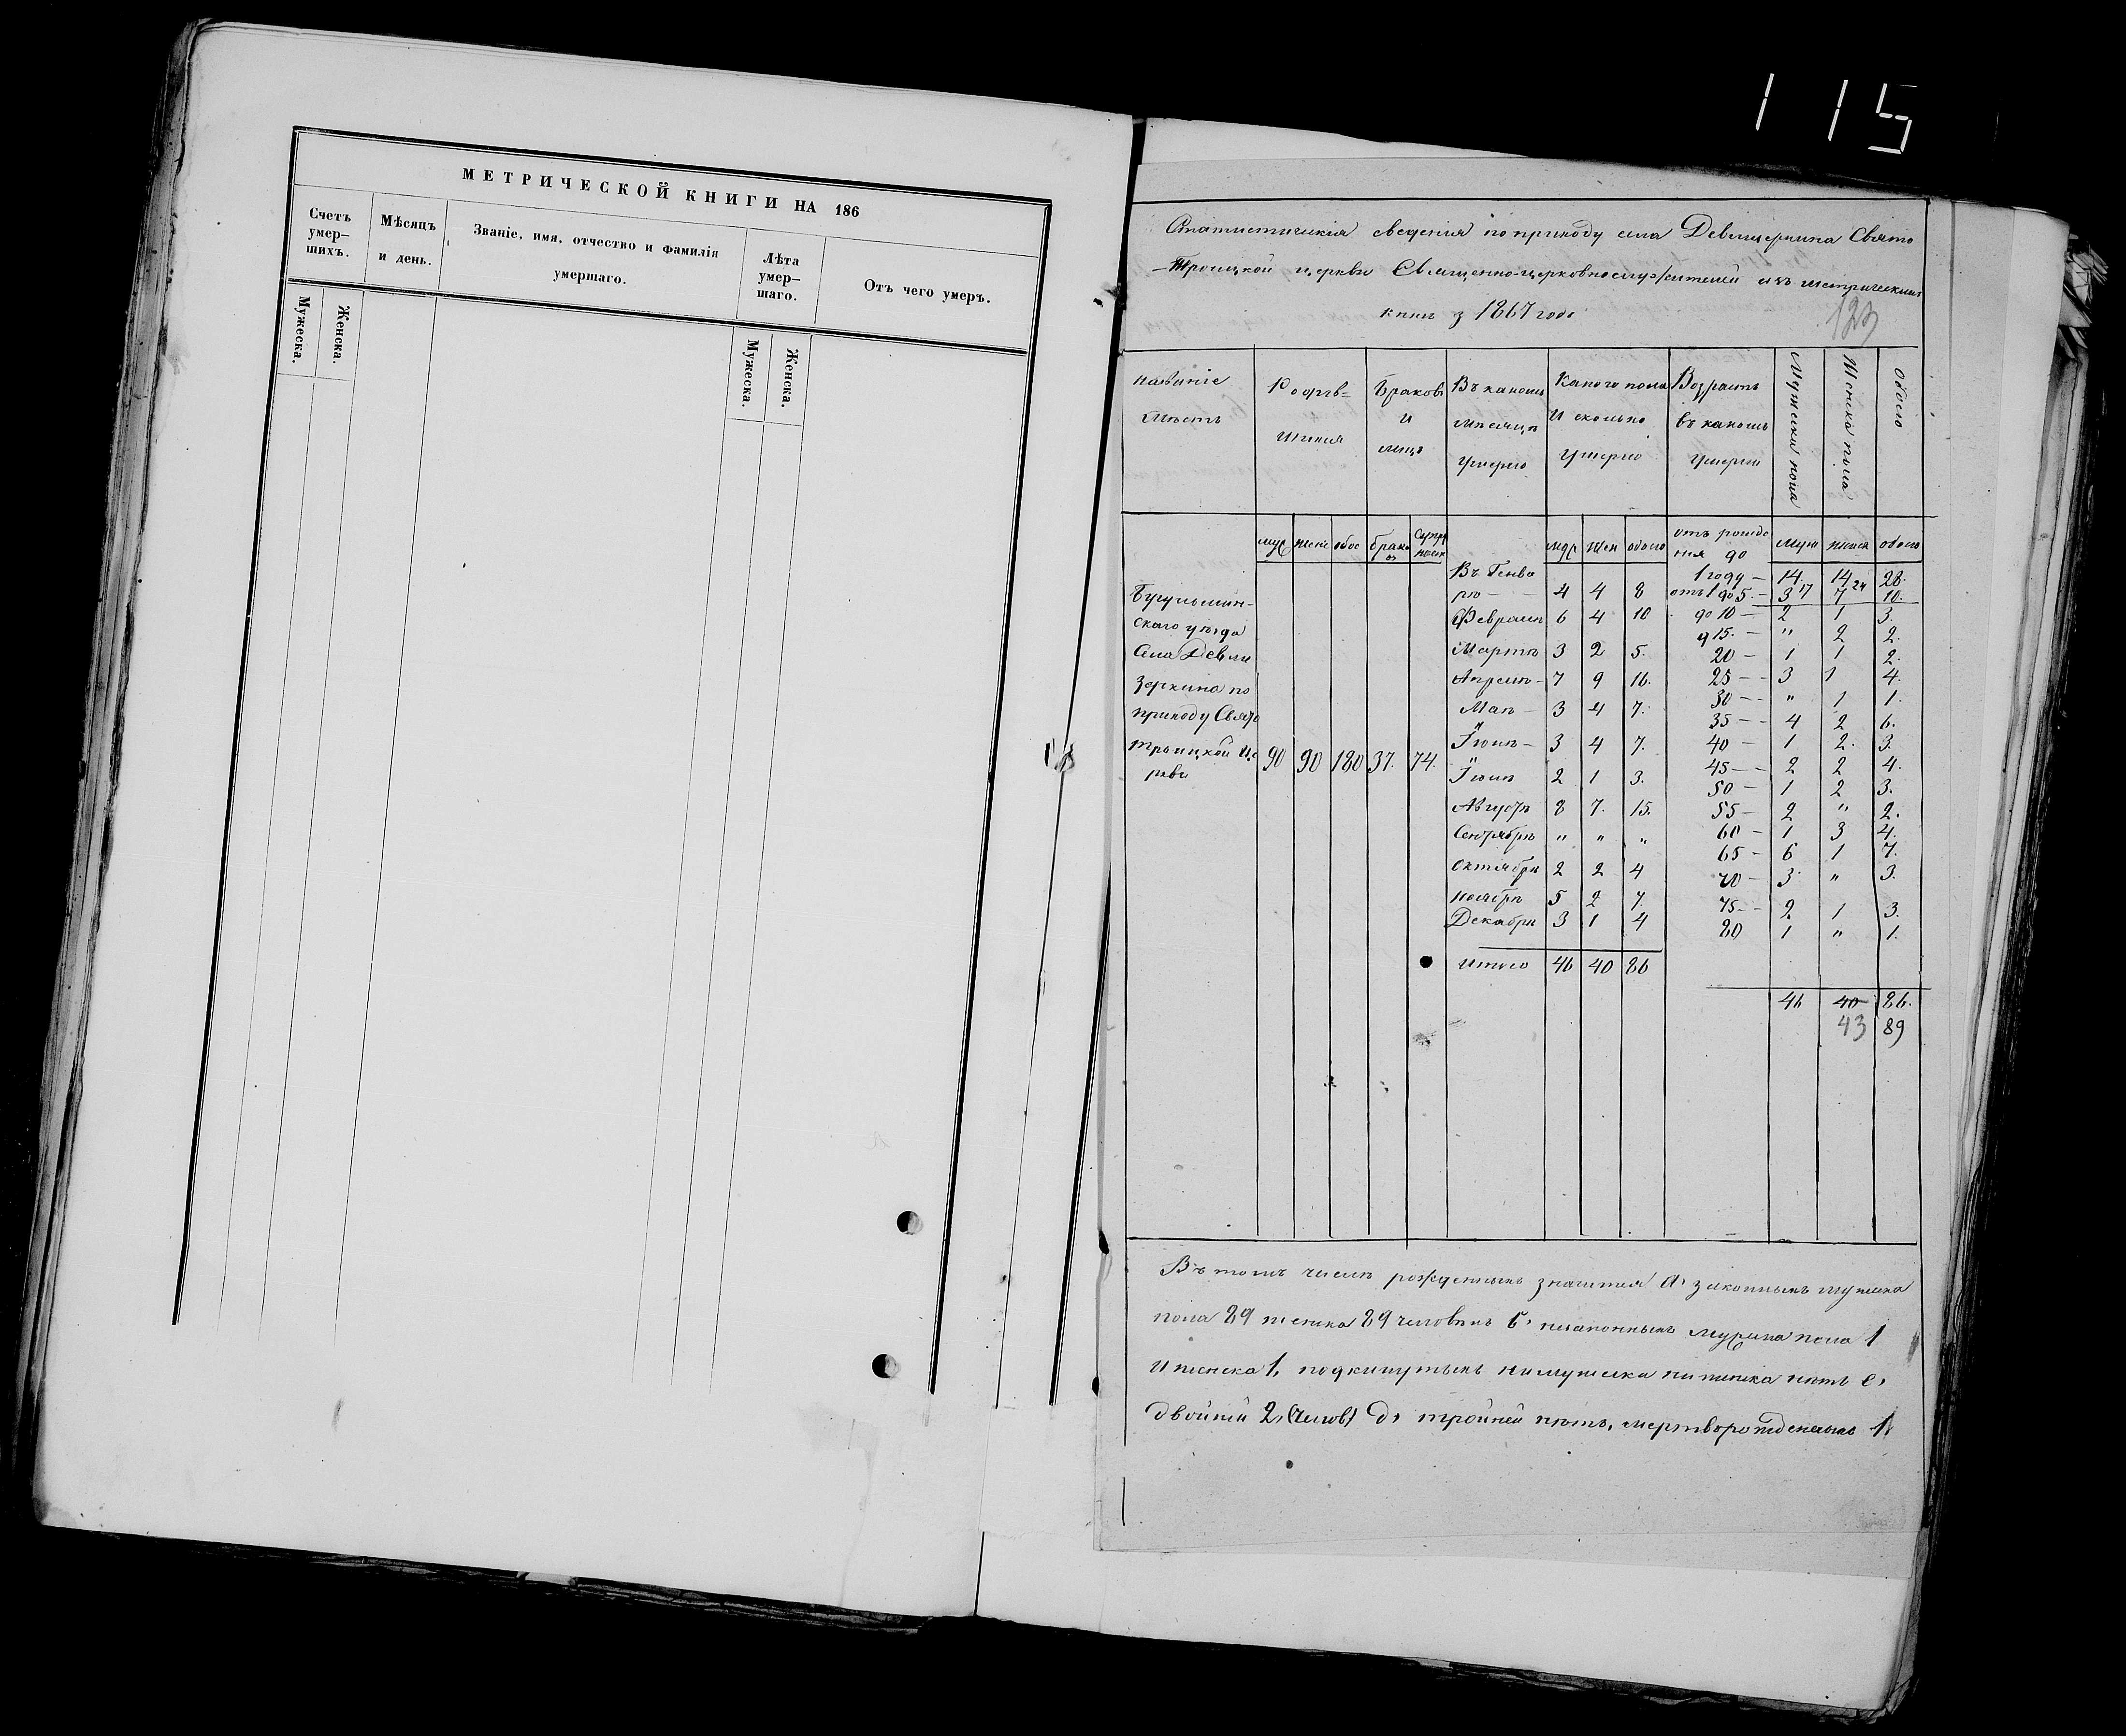 115
МЕТРИЧЕСКОЙ КНИГИ НА 186
Счетъ умер-шихъ.
Мѣсяцъ и день.
Званіе, имя, отчество и фамилія умершаго.
Лѣта умер-шаго.
Отъ чего умеръ.
Мужеска. Женска.
Мужеска. Женска.
Статистическія сведенія по приходу села Девлизеркина Свято
-Троицкой церкви Священно-церковнослужителей изъ метрическихъ
книгъ з 1867 годъ
123
названіе мѣстъ
Рождѣ-ния
Браковъ и лицъ
Въ какомъ мѣсяцѣ умерло
Какого пола и сколько умерло
Возрастъ въ какомъ умерли
Мужеска пола
Женска пола
Обоего
муж женс обое брако въ
муж жен обоего
отъ рожде ния до
муж женск обоего
Бугульмин-
скаго уѣзда
Села Девли
зеркина по
приходу Свято
троицкой Це
ркви
90 90 180 37. 74.
Въ Генва
рѣ — 4 4 8
Февралѣ 6 4 10
Мартѣ 3 2 5.
Апрелѣ- 7 9 16.
Маѣ — 3 4 7.
Іюнѣ — 3 4 7.
Іюлѣ 2 1 3.
Августѣ 8 7. 15.
Сентябрѣ " " "
Октябрѣ 2 2 4
Ноябрѣ 5 2 7.
Декабрѣ 3 1 4
Итого 46 40 86
1 году — 14. 14 28.
отъ 1 до 5. — 3 17 7 24 10.
до 10 — 2 1 3.
д 15. — " 2 2.
20 — 1 1 2.
25 — - 3 1 4.
30 — - " 1 1.
35 — - 4 2 6.
40 — 1 2. 3.
45 — - 2 2 4.
50 — 1 2 3.
55 — 2 " 2.
60 — 1 3 4.
65 — 6 1 7.
70 — 3 " 3.
75 — - 2 1 3.
80 1 " 1.
46 40 86.
43 89
Въ томъ числѣ рожденныхъ значится А, законныхъ мужеска
пола 89 женска 89 человѣкъ б, незаконныхъ мужеска пола 1
и женска 1, подкинутыхъ ни мужеска ни женска нѣтъ с,
двойней 2, (челов) д, тройней нѣтъ, мертворожденныхъ 1